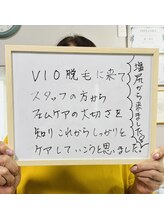 VIO脱毛に来て
スタッフの方から
フェムケアの大切さを
知りこれからしっかりと
ケアしていこうと思いました!
塩尻から来ました!